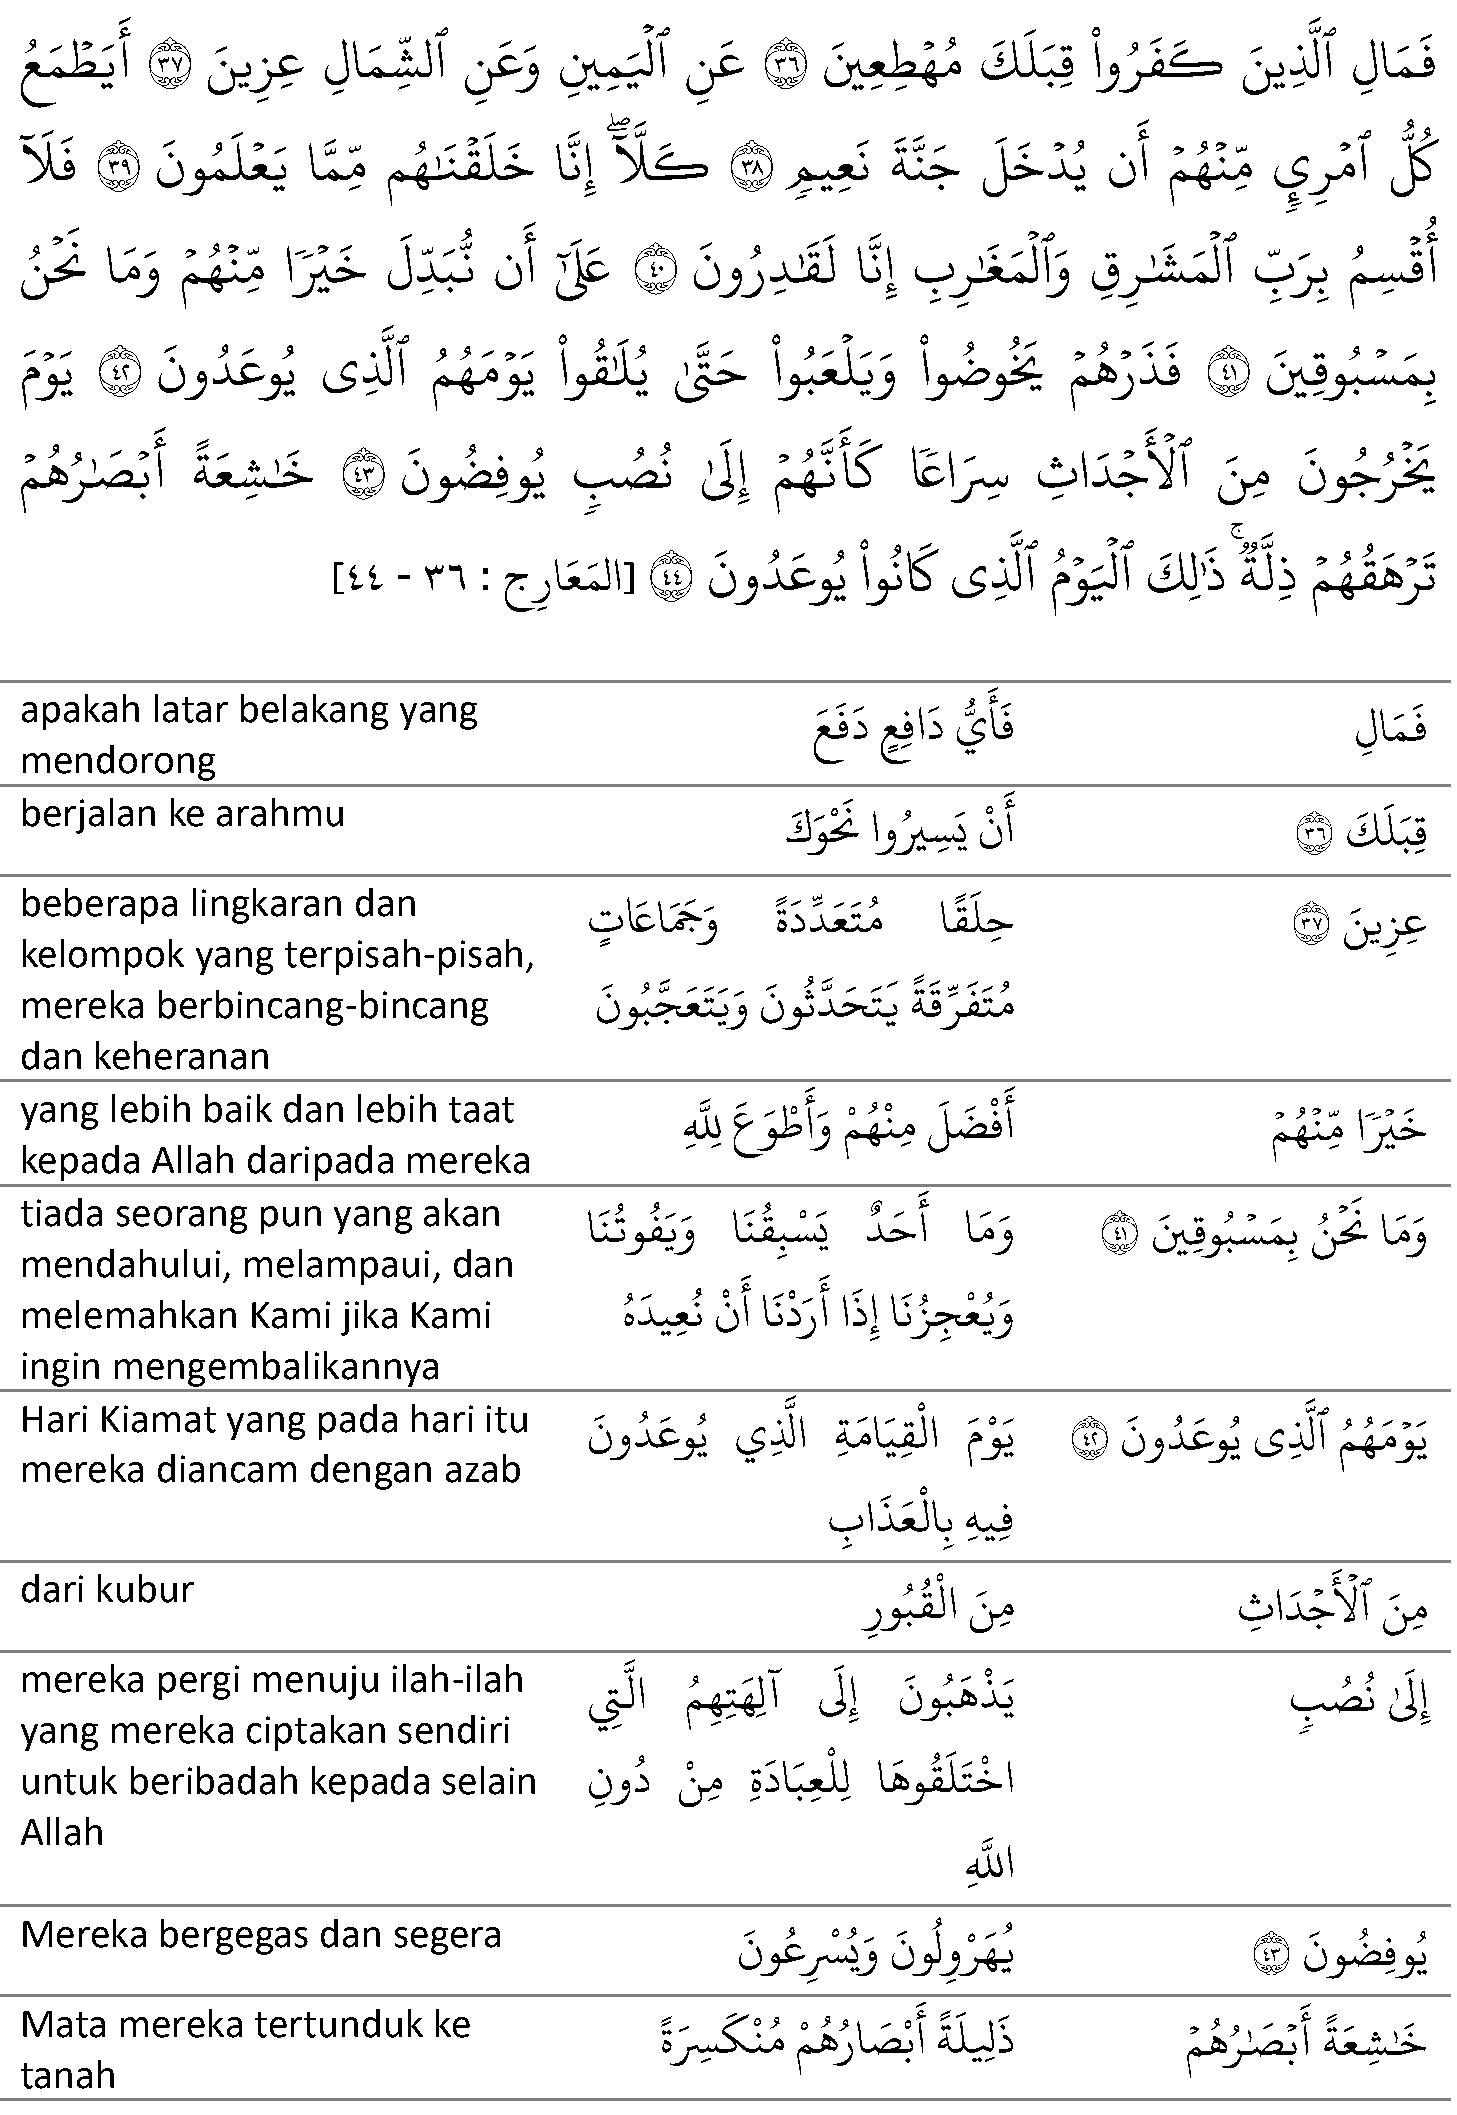 فَمَالِ ٱلَّذِينَ كَفَرُوا۟ قِبَلَكَ مُهْطِعِينَ ٣٦ عَنِ ٱلْيَمِينِ وَعَنِ ٱلشِّمَالِ عِزِينَ ٣٧ أَيَطْمَعُ
كُلُّ ٱمْرِئٍ مِّنْهُمْ أَن يُدْخَلَ جَنَّةَ نَعِيمٍ ٣٨ كَلَّآ ۖ إِنَّا خَلَقْنَـٰهُم مِّمَّا يَعْلَمُونَ ٣٩ فَلَآ
أُقْسِمُ بِرَبِّ ٱلْمَشَـٰرِقِ وَٱلْمَغَـٰرِبِ إِنَّا لَقَـٰدِرُونَ ٤٠ عَلَىٰٓ أَن نُّبَدِّلَ خَيْرًا مِّنْهُمْ وَمَا نَحْنُ
بِمَسْبُوقِينَ ٤١ فَذَرْهُمْ يَخُوضُوا۟ وَيَلْعَبُوا۟ حَتَّىٰ يُلَـٰقُوا۟ يَوْمَهُمُ ٱلَّذِى يُوعَدُونَ ٤٢ يَوْمَ
يَخْرُجُونَ مِنَ ٱلْأَجْدَاثِ سِرَاعًا كَأَنَّهُمْ إِلَىٰ نُصُبٍ يُوفِضُونَ ٤٣ خَـٰشِعَةً أَبْصَـٰرُهُمْ
تَرْهَقُهُمْ ذِلَّةٌ ۚ ذَٰلِكَ ٱلْيَوْمُ ٱلَّذِى كَانُوا۟ يُوعَدُونَ ٤٤ [المَعَارِج : ٣٦ - ٤٤]
فَمَالِ
فَأَيُّ دَافِعٍ دَفَعَ
apakah latar belakang yang
mendorong
قِبَلَكَ ٣٦
أَنْ يَسِيرُوا نَحْوَكَ
berjalan ke arahmu
عِزِينَ ٣٧
حِلَقًا مُتَعَدِّدَةً وَجَمَاعَاتٍ
مُتَفَرِّقَةً يَتَحَدَّثُونَ وَيَتَعَجَّبُونَ
beberapa lingkaran dan
kelompok yang terpisah-pisah,
mereka berbincang-bincang
dan keheranan
خَيْرًا مِّنْهُمْ
أَفْضَلَ مِنْهُمْ وَأَطْوَعَ لِلَّهِ
yang lebih baik dan lebih taat
kepada Allah daripada mereka
وَمَا نَحْنُ بِمَسْبُوقِينَ ٤١
وَمَا أَحَدٌ يَسْبِقُنَا وَيَفُوتُنَا
وَيُعْجِزُنَا إِذَا أَرَدْنَا أَنْ نُعِيدَهُ
tiada seorang pun yang akan
mendahului, melampaui, dan
melemahkan Kami jika Kami
ingin mengembalikannya
يَوْمَهُمُ ٱلَّذِى يُوعَدُونَ ٤٢
يَوْمَ الْقِيَامَةِ الَّذِي يُوعَدُونَ
فِيهِ بِالْعَذَابِ
Hari Kiamat yang pada hari itu
mereka diancam dengan azab
مِنَ ٱلْأَجْدَاثِ
مِنَ الْقُبُورِ
dari kubur
إِلَىٰ نُصُبٍ
يَذْهَبُونَ إِلَى آلِهَتِهِمُ الَّتِي
اخْتَلَقُوهَا لِلْعِبَادَةِ مِنْ دُونِ
اللَّهِ
mereka pergi menuju ilah-ilah
yang mereka ciptakan sendiri
untuk beribadah kepada selain
Allah
يُوفِضُونَ ٤٣
يُهَرْوِلُونَ وَيُسْرِعُونَ
Mereka bergegas dan segera
خَـٰشِعَةً أَبْصَـٰرُهُمْ
ذَلِيلَةً أَبْصَارُهُمْ مُنْكَسِرَةً
Mata mereka tertunduk ke
tanah